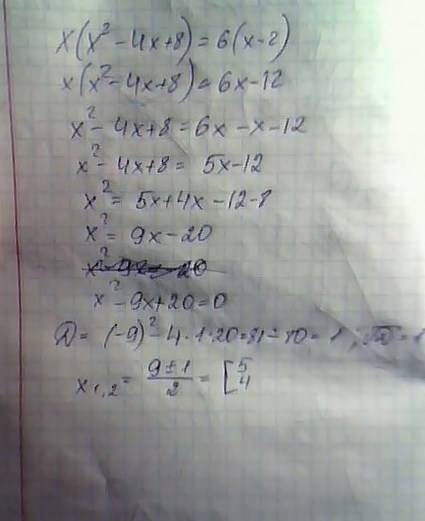 x(x² - 4x + 8) = 6(x - 2)
x(x² - 4x + 8) = 6x - 12
x² - 4x + 8 = 6x - x - 12
x² - 4x + 8 = 5x - 12
x² = 5x + 4x - 12 - 8
x² = 9x - 20
x² - 9x = -20
x² - 9x + 20 = 0
D = (-9)² - 4 · 1 · 20 = 81 - 80 = 1; √D = 1
x₁,₂ = (9 ± 1)/2 = [5 4